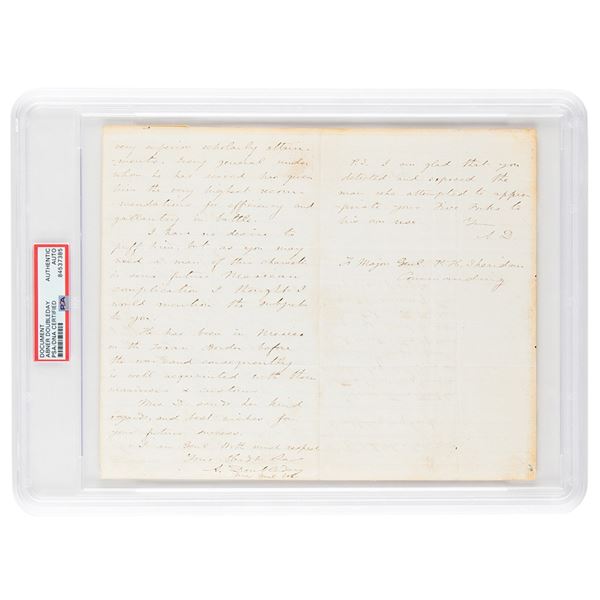 very superior scholarly attain-
ments. Every general under
whom he has served has given
him the very highest recom-
mendations for efficiency and
gallantry in battle.
I have no desire to
puff him, but as you may
need a man of this character
in some future Mexican
complication I thought I
would mention the subject
to you.
He has been in Mexico
on the Texan Border before
the war and consequently
is well acquainted with their
manners & customs.
Mrs D. sends her kind
regards and best wishes for
your future success.
I am Genl. With much respect
Your Obdt Servt
A. Doubleday
P.S. I am glad that you
detected and exposed the
man who attempted to appro-
priate your Five Forks to
his own use.
Yours
A D
To Major Genl P. H. Sheridan
Commanding
DOCUMENT
ABNER DOUBLEDAY
PSA/DNA CERTIFIED
AUTHENTIC
AUTO
84537385
PSA